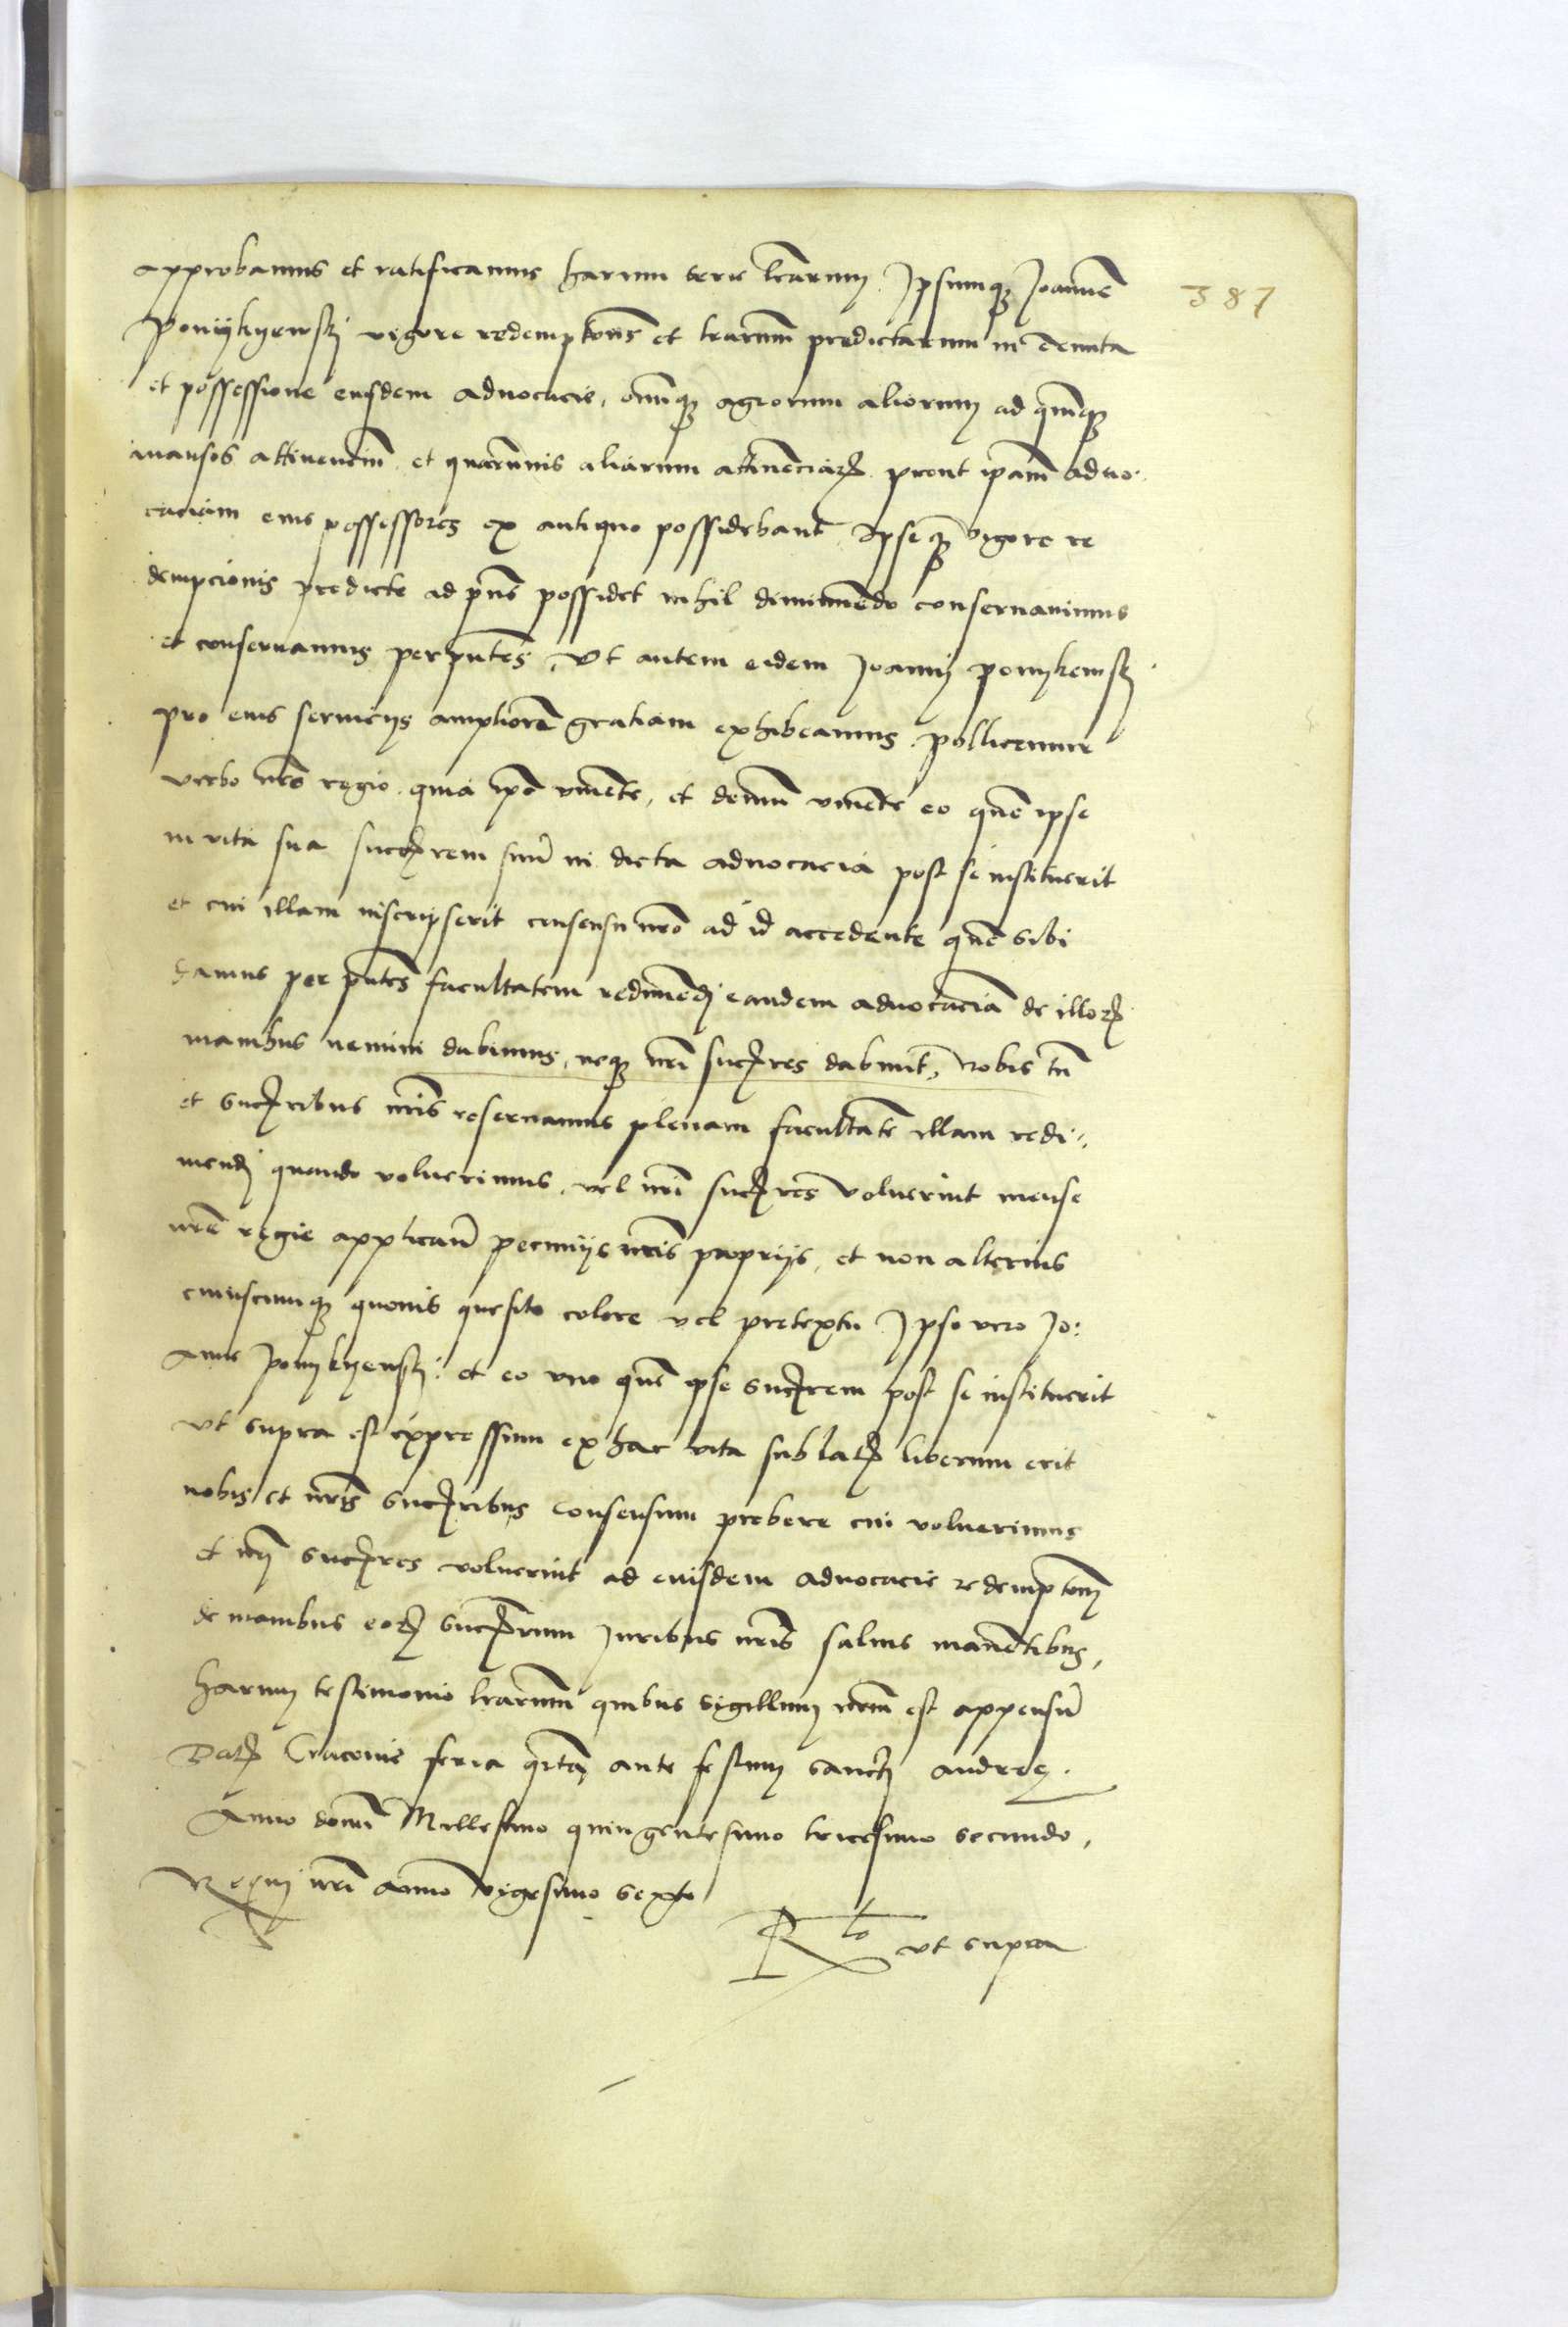 approbamus et ratificamus harum serie lrarum Ipsumqz Joanne
387
Ponijkyewskj vigore redemptonis et lrarum predictarum in tenuta
et possessione eiusdem aduocacie, omniqz agrorum aliorum ad quinqz
mansos attinencium et quarumuis aliarum attinenciarz prout ipam aduo
caciam eius possessores ex antiquo possidebant Ipseqz vigore re
dempcionis predicte ad pns possidet nihil diminuendo conseruauimus
et conseruamus per pntes, Vt autem eidem Joannj ponykewskj
pro eius seruicijs ampliore gratiam exhibeamus pollicemur
verbo nro regio quia ipo viuente, et demum viuente eo que ipse
in vita sua successorem suu in dicta aduocacia post se instituerit
et cui illam inscripserit consensu nro ad id accedente que sibi
damus per pntes facultatem redimendj eandem aduocacia de illorz
manibus nemini dabimus, neqz nri succres dabunt, Nobis tn
et succribus nris reseruamus plenam facultate illam redi
mendj quando voluerimus, vel nri succres voluerint mense
nre regie applicand pecunijs nris proprijs, et non alterius
cuiuscumqz quouis quesito colore vel pretextu Ipso vero Jo:
anne Ponykyewskj: et eo vno que ipse succrem post se instituerit
vt supra est expressum ex hac vita sublatz liberum erit
nobis et nris succribus consensum prebere cui voluerimus
et nrj succres voluerint ad eiusdem aduocacie redemptonem
de manibus eorz succrum Juribus nris saluis manentibus,
harum testimonio lrarum quibus sigillum nrum est appensu
Datz Cracouie feria qrta ante festum sancti andree.
Anno domi Millesimo quingentesimo tricesimo secundo,
Regni nri anno vigesimo sexto
Rlo vt supra